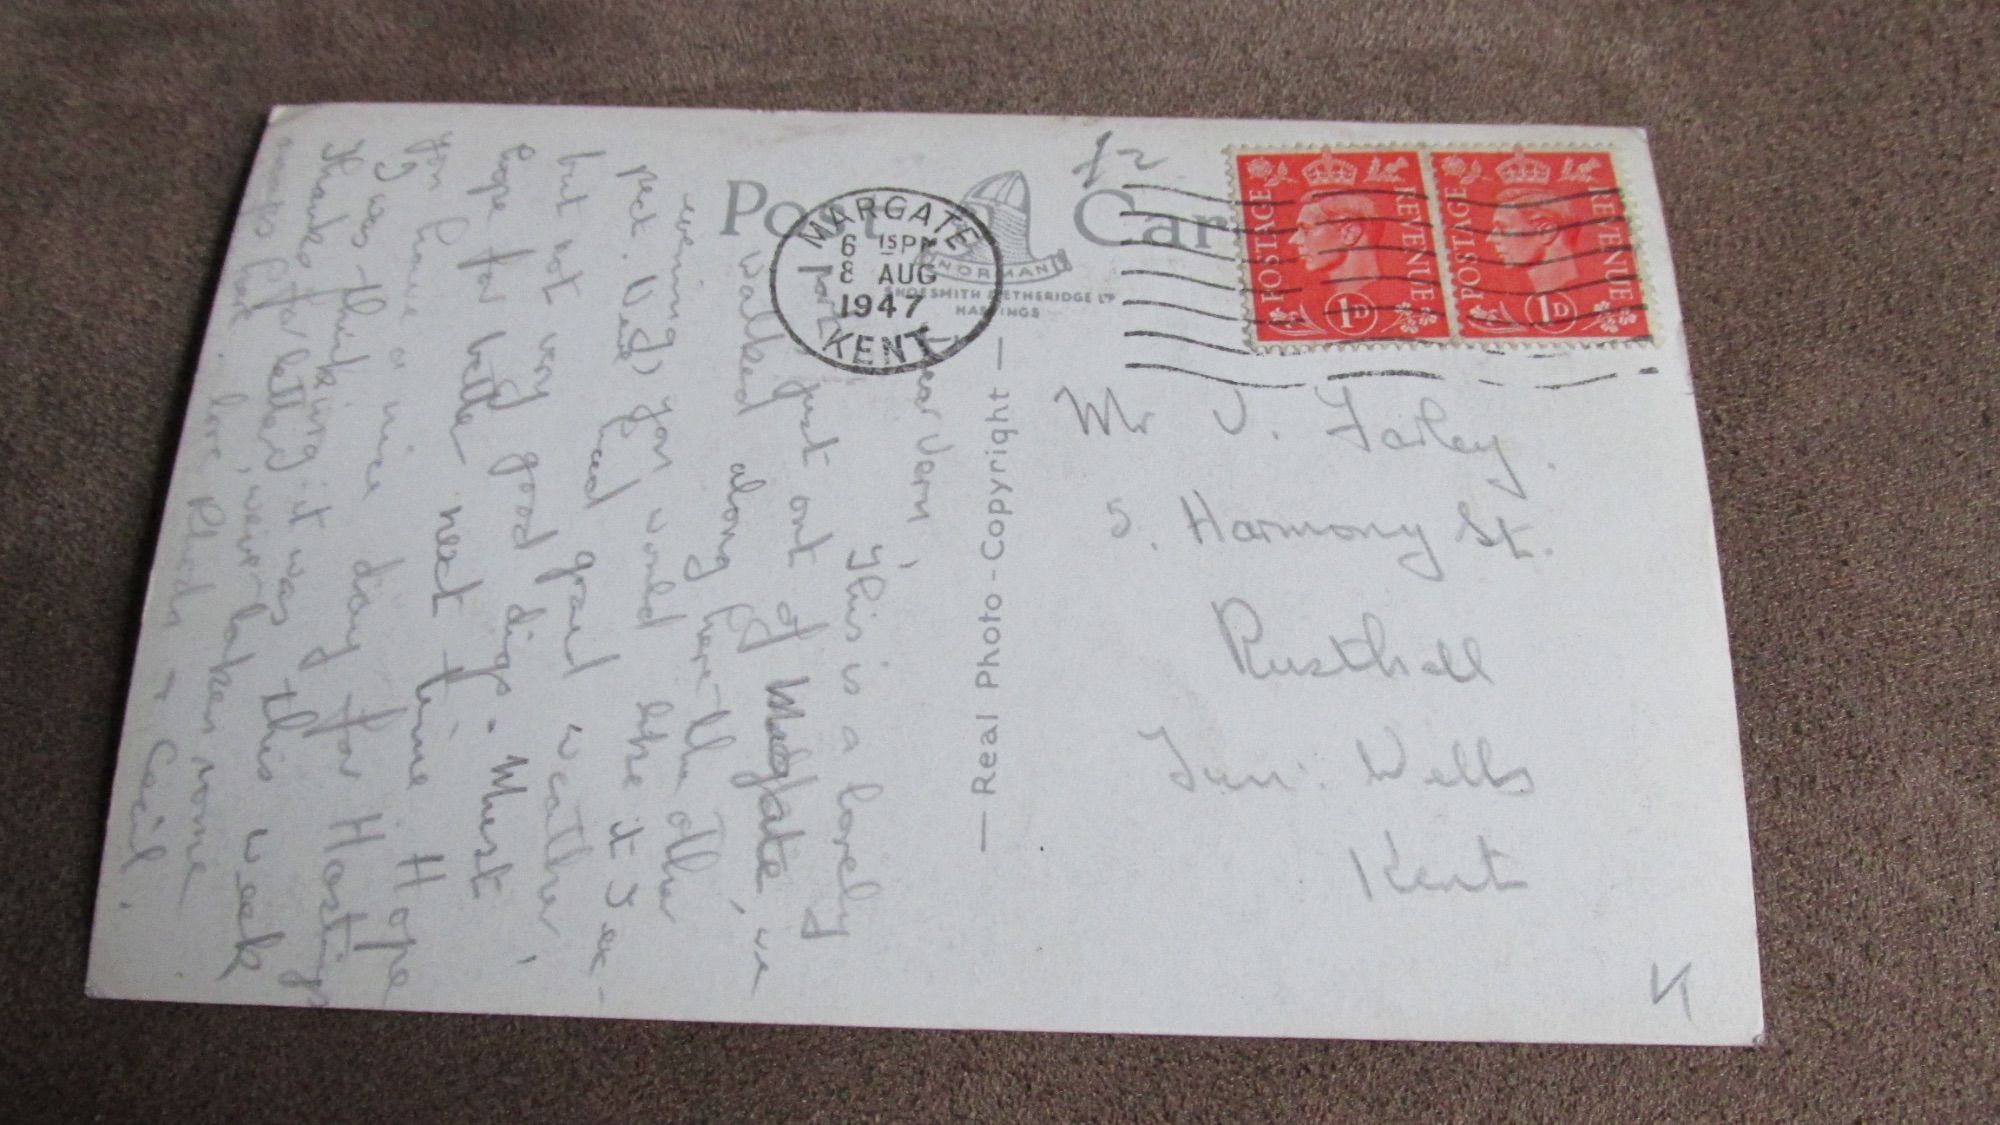 Post Card
NORMAN
SHOESMITH & ETHERIDGE LTD
HASTINGS
— Real Photo-Copyright —
MARGATE
6 15PM
8 AUG
1947
KENT
POSTAGE REVENUE
1D
POSTAGE REVENUE
1D
£2
Mr V. Farley.
5. Harmony St.
Rusthall
Tun: Wells
Kent
Dear Vern,
This is a lovely
part just out of Margate, we
walked along here the other
evening, you would like it I ex-
pect. Very good weather,
but not very good digs. Must
hope for better next time. Hope
you have a nice day for Hastings
I was thinking it was this week
Thanks for letter, weir-bakes some
love Rhoda & Cecil.